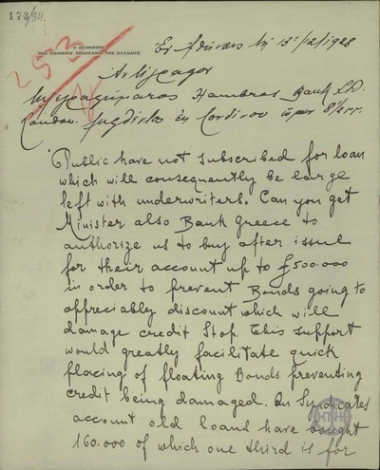 173/50.
Ο ΔΙΟΙΚΗΤΗΣ
253
Ἐν Ἀθήναις τῇ 13/12/1928
Ἀντίγραφον
Hambros Bank Ld.
London.
Public have not subscribed for loan
which will consequently be large
left with underwriters. Can you get
Minister also Bank Greece to
authorize us to buy after issue
for their account up to £500.000
in order to prevent Bonds going to
appreciably discount which will
damage credit Stop This support
would greatly facilitate quick
placing of floating Bonds preventing
credit being damaged. In Syndicates
account old loans have bought
160.000 of which one third is for